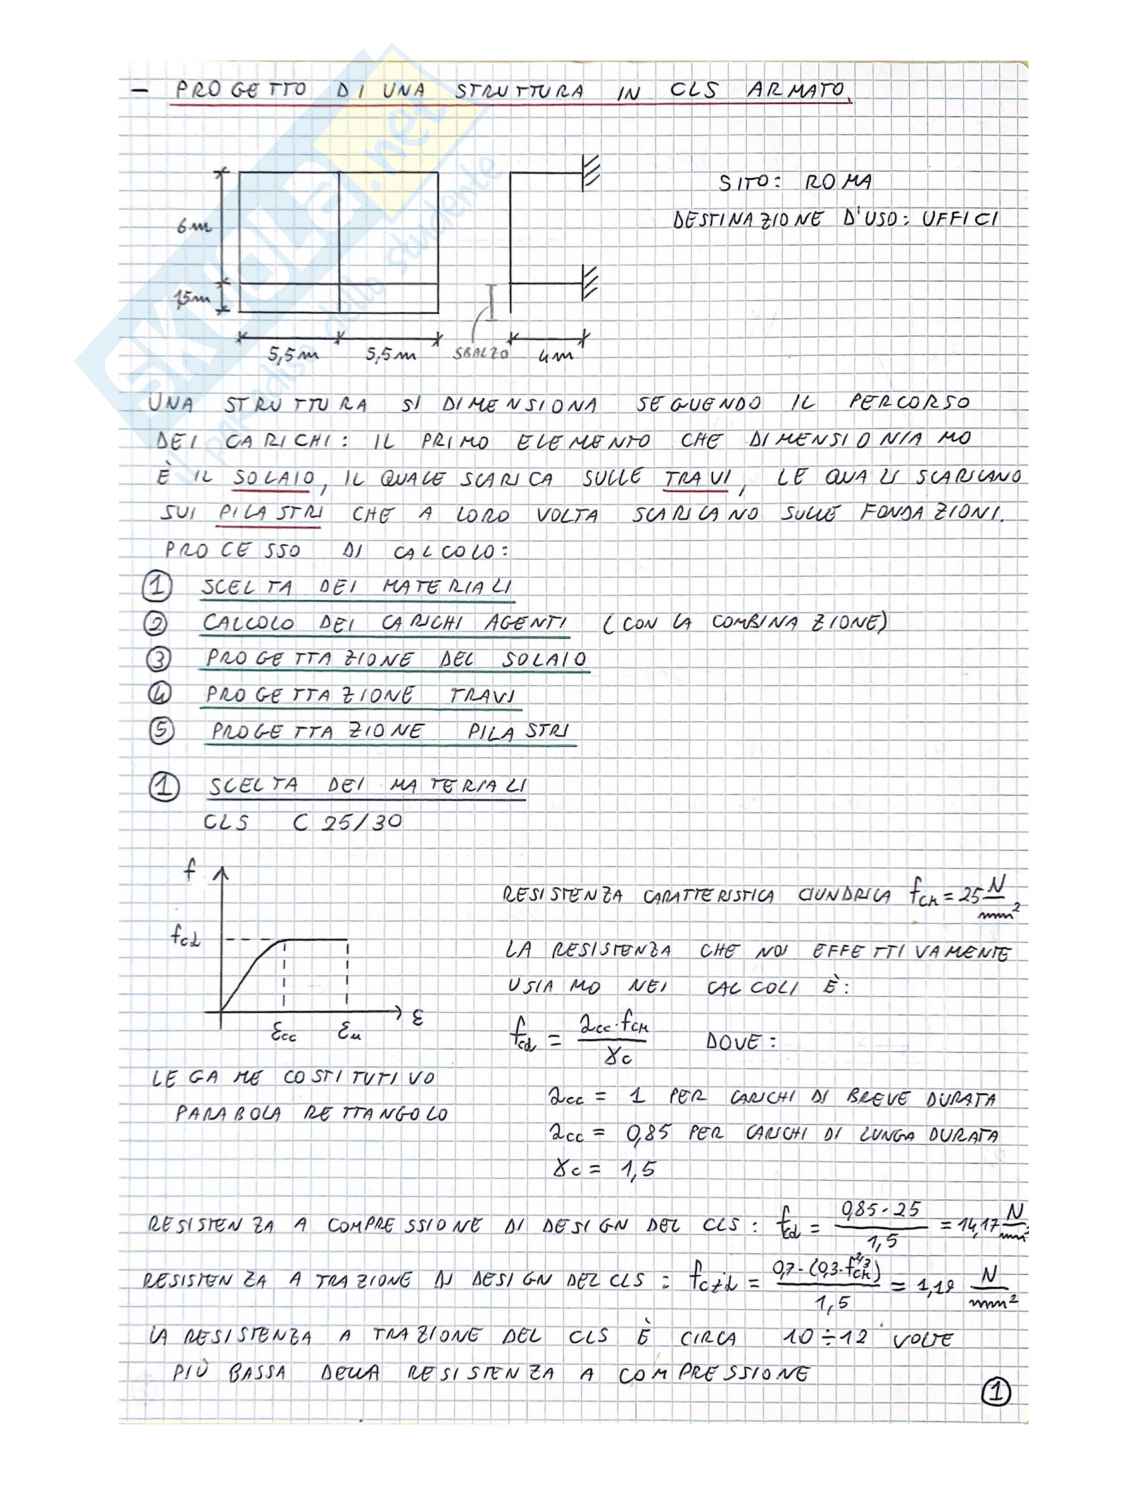 - PROGETTO DI UNA STRUTTURA IN CLS ARMATO.
SITO: ROMA
DESTINAZIONE D'USO: UFFICI
6m
1,5m
5,5m 5,5m SBALZO 4m
UNA STRUTTURA SI DIMENSIONA SEGUENDO IL PERCORSO
DEI CARICHI: IL PRIMO ELEMENTO CHE DIMENSIONIAMO
È IL SOLAIO, IL QUALE SCARICA SULLE TRAVI, LE QUALI SCARICANO
SUI PILASTRI CHE A LORO VOLTA SCARICANO SULLE FONDAZIONI.
PROCESSO DI CALCOLO:
① SCELTA DEI MATERIALI
② CALCOLO DEI CARICHI AGENTI (CON LA COMBINAZIONE)
③ PROGETTAZIONE DEL SOLAIO
④ PROGETTAZIONE TRAVI
⑤ PROGETTAZIONE PILASTRI
① SCELTA DEI MATERIALI
CLS C 25/30
f
fcd
εcc εu ε
LEGAME COSTITUTIVO
PARABOLA RETTANGOLO
RESISTENZA CARATTERISTICA CILINDRICA fck = 25 N/mm²
LA RESISTENZA CHE NOI EFFETTIVAMENTE
USIAMO NEI CALCOLI È:
fcd = αcc·fck/γc DOVE:
αcc = 1 PER CARICHI DI BREVE DURATA
αcc = 0,85 PER CARICHI DI LUNGA DURATA
γc = 1,5
RESISTENZA A COMPRESSIONE DI DESIGN DEL CLS: fcd = 0,85·25/1,5 = 14,17 N/mm²
RESISTENZA A TRAZIONE DI DESIGN DEL CLS: fctd = 0,7·(0,3·fck^2/3)/1,5 = 1,19 N/mm²
LA RESISTENZA A TRAZIONE DEL CLS È CIRCA 10÷12 VOLTE
PIÙ BASSA DELLA RESISTENZA A COMPRESSIONE
①
SKUOLA.net
il paradiso dello studente